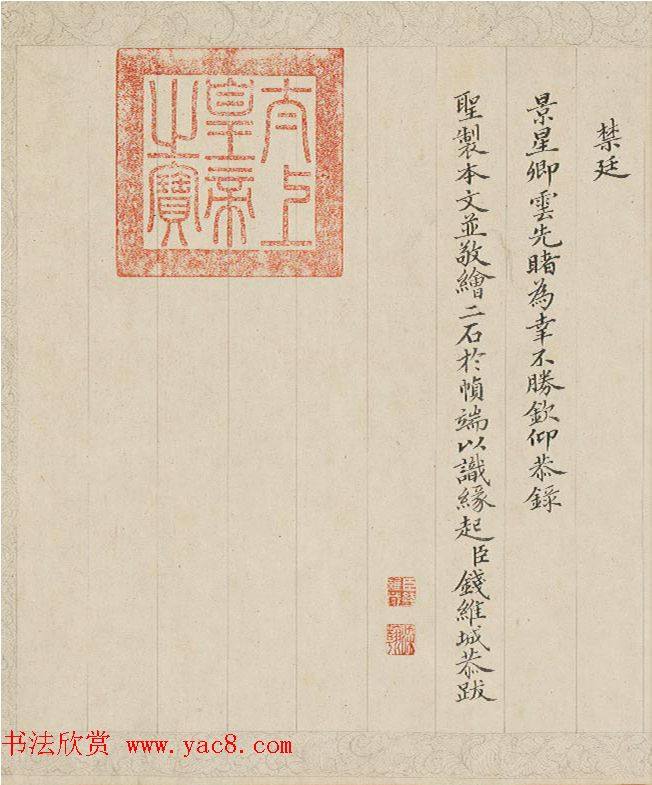 禁廷
景星卿雲先睹為幸不勝欽仰恭錄
聖製本文並敬繪二石於幀端以識緣起臣錢維城恭跋
太上
皇帝
之寶
书法欣赏 www.yac8.com